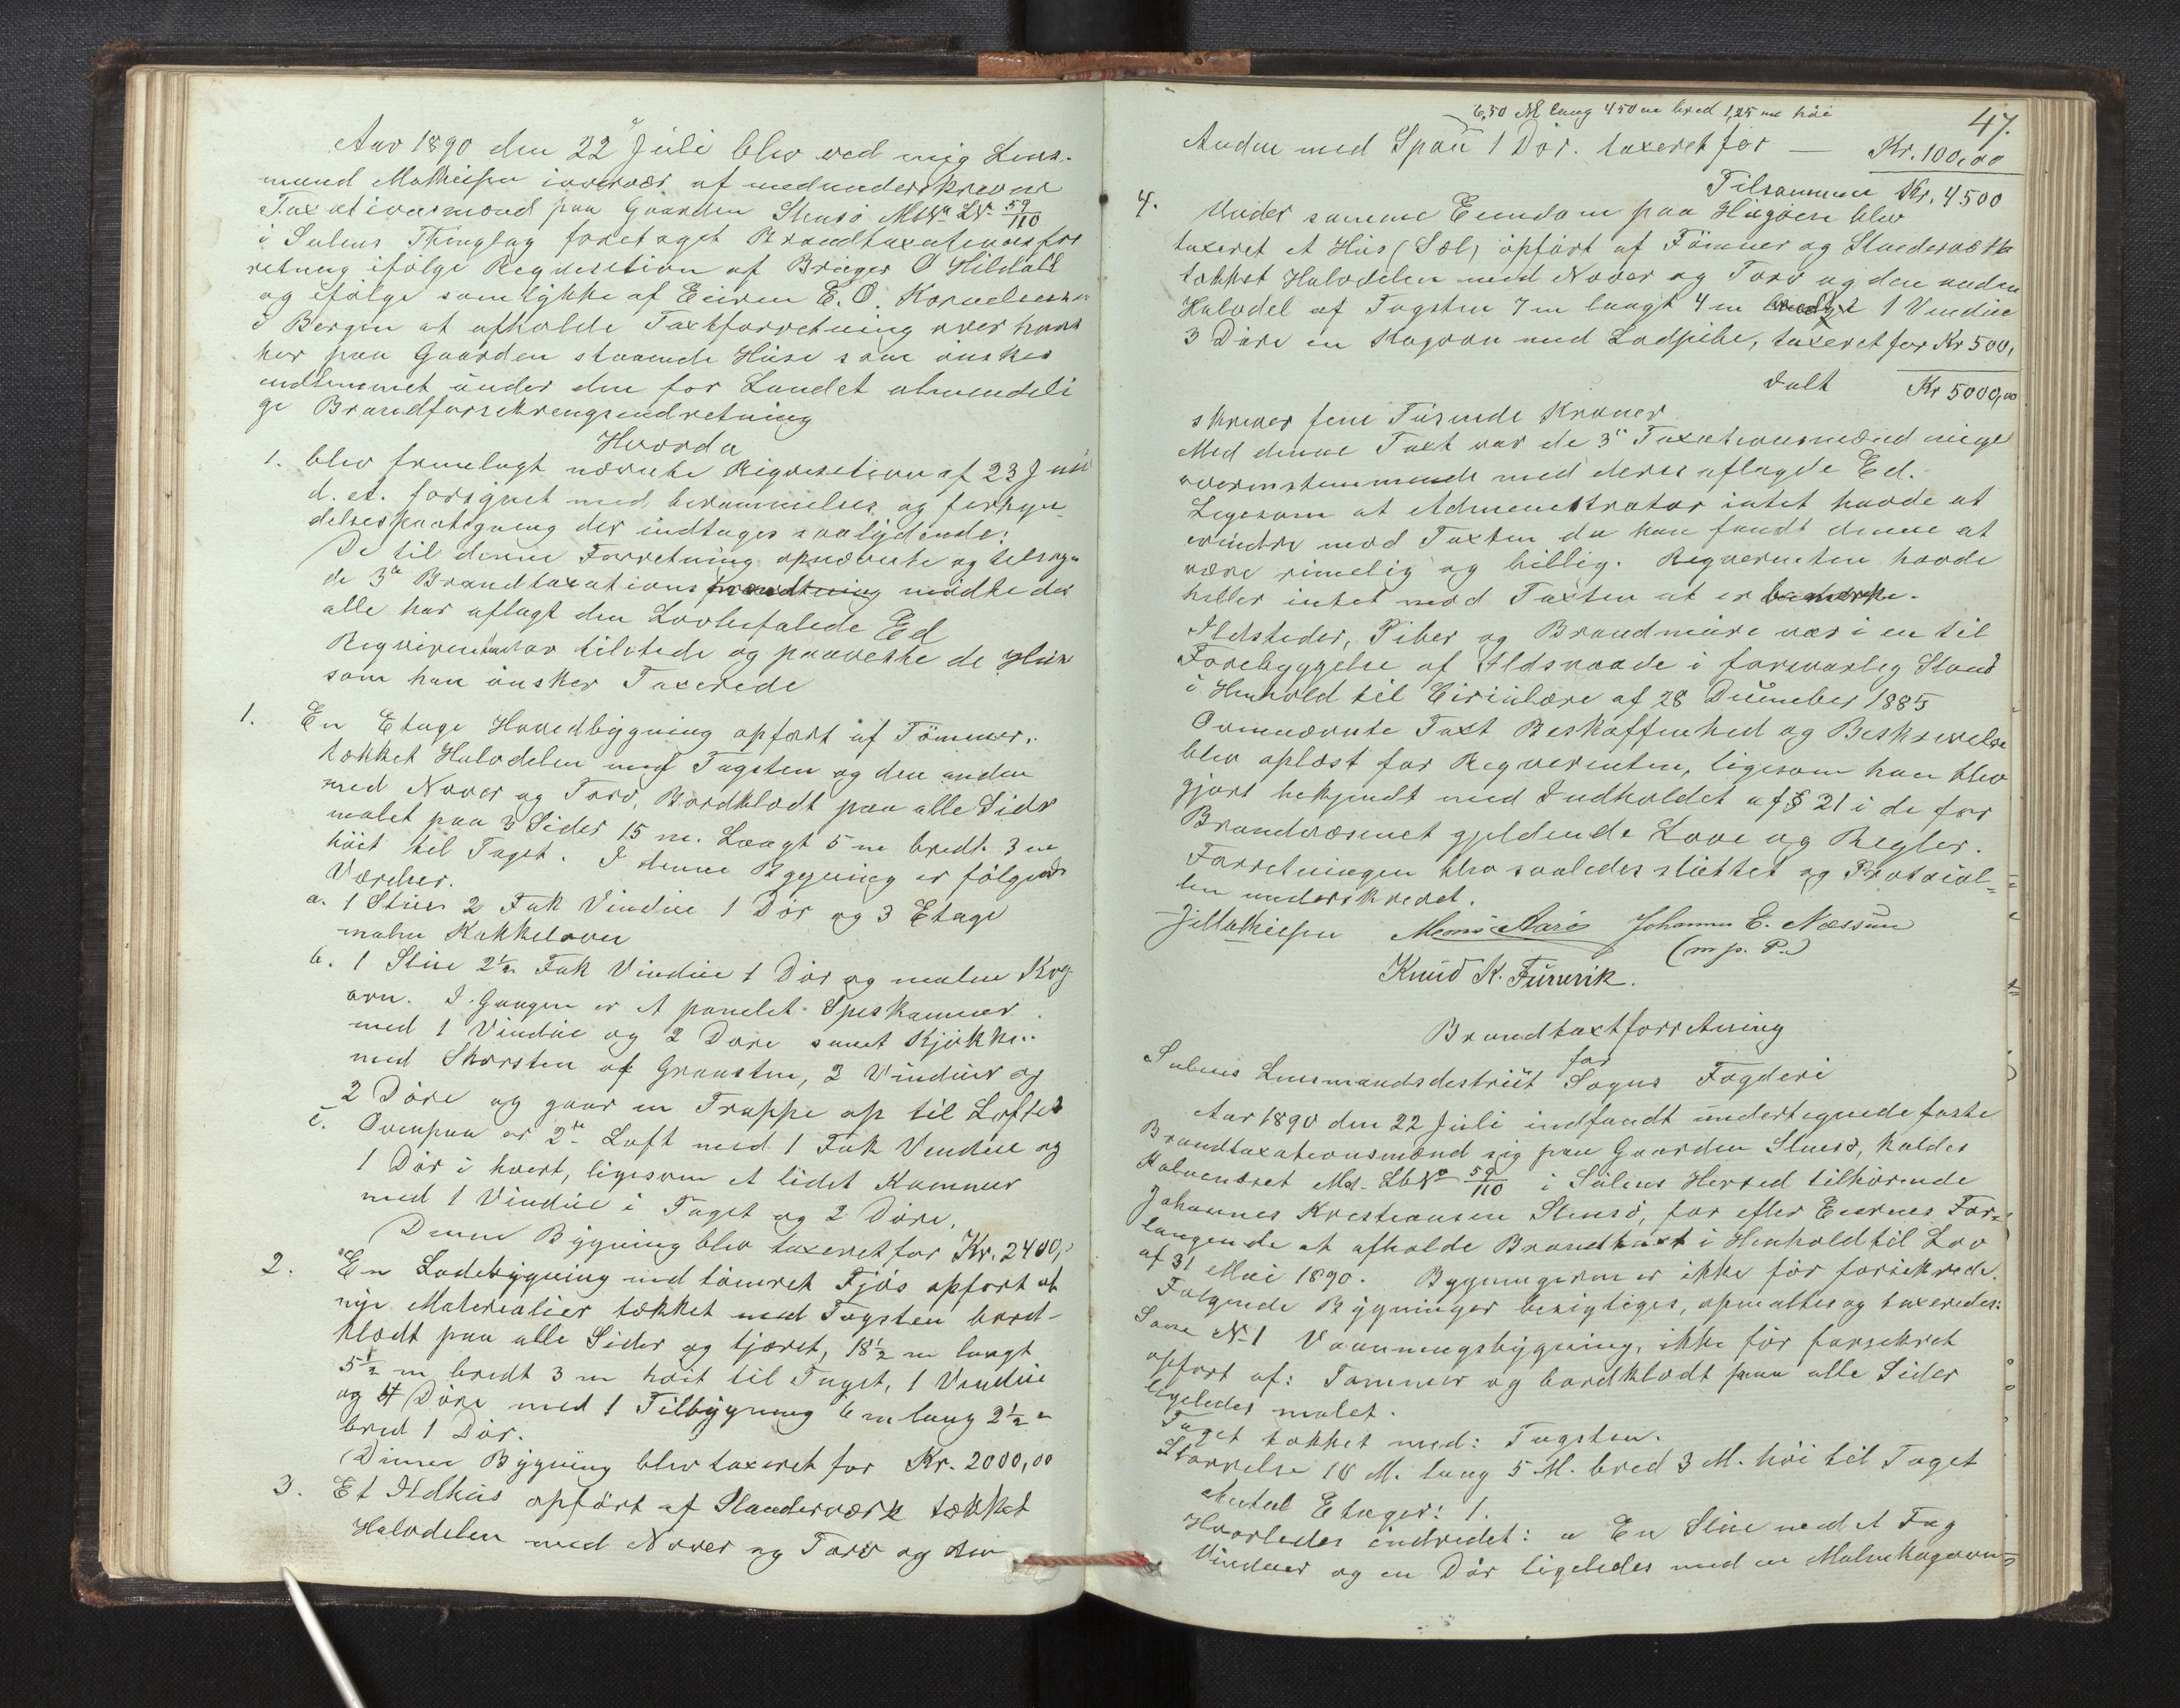 Aar 1890 den 22 Juli blev ved mig Lens-
mand Mathiesen i overvær af medunderskrevne
Taxationsmænd paa Gaarden Stensö MNo LNo 59/110
i Sulens Thinglag foretaget Brandtaxationsfor
retning ifølge Requisition af Bruger O Hildall
og ifølge samtykke af Eieren E. O. Kornelius
i Bergen at afholde Taxtforretning over hans
her paa Gaarden staaende Huse som önskes
indlemmet under den for Landet almindeli
ge Brandforsikrengsindretning
Hvorda
1. blev fremlagt nævnte Reqvisition af 23 Juni
d. A. forsynet med berammelses og forkyn-
delsespaategning der indtages saalydende:
De til denne Forretning opnævnte og tilsag-
de 3de Brandtaxations mödte der
alle har aflagt den Lovbefalede Ed
Reqvirenten var tilstede og paaviste de Huse
som han önsker Taxerede
1. En Etage Hovedbygning opfört af Tömmer,
tækket Halvdelen med Tagsten og den anden
med Næver og Torv, Bordklædt paa alle Sider
malet paa 3 Sider 15 m. Langt 5 m bredt 3 m
höit til Taget. I denne Bygning er fölgende
Værelser.
a. 1 Stue 2 Fak Vindue 1 Dör og 3 Etage
malm Kakkelovn
b. 1 Stue 2½ Fak Vindue 1 Dör og malm Kog-
ovn. I Gangen er et panelet Speskammer
med 1 Vindue og 2 Döre samt Kjökken
med Skorsten af Graasten, 2 Vinduer og
2 Döre og gaar en Trappe op til Loftet
c. Ovenpaa er 2de Loft med 1 Fak Vindue og
1 Dör i hvert, ligesom et lidet Kammer
med 1 Vindue i Taget og 2 Döre.
Denne Bygning blev taxeret for Kr. 2400,
2. En Ladebygning med tömret Fjös opfört af
nye Materialier tækket med Tagsten bord-
klædt paa alle Sider og tjæret, 18½ m langt
5½ m bredt 3 m höit til Taget, 1 Vindue
og 4 Döre med 1 Tilbygning 6 m lang 2½ m
bred 1 Dör.
Denne Bygning blev taxeret for Kr. 2000,00
3. Et Ildhus opfört af Standerværk tækket
Halvdelen med Næver og Torv og den
47.
6,50 M lang 450 m bred 1,25 m höi
Anden med Spaan 1 Dör. taxeret for — Kr. 100,00
Tilsammen Kr. 4500
4. Under samme Eiendom paa Hügöen blev
taxeret et Hus (Sæl) opfört af Tömmer og Standerværk
tækket Halvdelen med Næver og Torv og den anden
Halvdel af Tagsten 7 m langt 4 m bredt 1 Vindue
3 Döre en Kogovn med Ladpibe, taxeret for Kr 500,
ialt Kr 5000,00
skriver fem Tusinde Kroner
Med denne Taxt var de 3de Taxationsmænd enige
overenstemmende med deres aflagte Ed.
Ligesom at Admenestrator intet havde at
erindre mod Taxten da han fandt denne at
være rimelig og billig. Reqverenten havde
heller intet mod Taxten at bemærke.
Ildsteder, Piber og Brandmure var i en til
Forebyggelse af Ildsvaade i forsvarlig Stand
i Henhold til Cirkulære af 28 December 1885
Ovennævnte Taxt Beskaffenhed og Beskrivelse
blev oplæst for Reqverenten, ligesom han blev
gjort bekjendt med Indholdet af § 21 i de for
Brandvæsenet gjeldende Love og Regler.
Forretningen blev saaledes sluttet og Protocol-
len underskrevet.
J Mathiesen Johannes E. Næssun
(m. p. P.)
Knud K. Fürurik.
Brandtaxtforretning
for
Sulens Lensmandsdestrict Sogns Fogderi
Aar 1890 den 22 Juli indfandt undertegnede faste
Brandtaxationsmænd sig paa Gaarden Stensö, kaldes
Kalveneset Md. LbNo 59/110 i Sulens Herred tilhörende
Johannes Krestiansen Stensö, for efter Eierens For-
langende at afholde Brandtaxt i Henhold til Lov
af 31 Mai 1890. Bygningerne er ikke för forsikrede.
Fölgende Bygninger besigtiges, opmaaltes og taxeredes:
Som No 1 Vaaningsbygning, ikke för forsekret
opfört af: Tömmer og bordklædt paa alle Sider
ligeledes malet.
Taget tækket med: Tagsten.
Störrelse 10 M. lang 5 M. bred 3 M. höi til Taget
Antal Etager: 1.
Hvorledes indredet: a En Stue med et Fag
Vinduer og en Dör ligeledes med en Malmkogovn